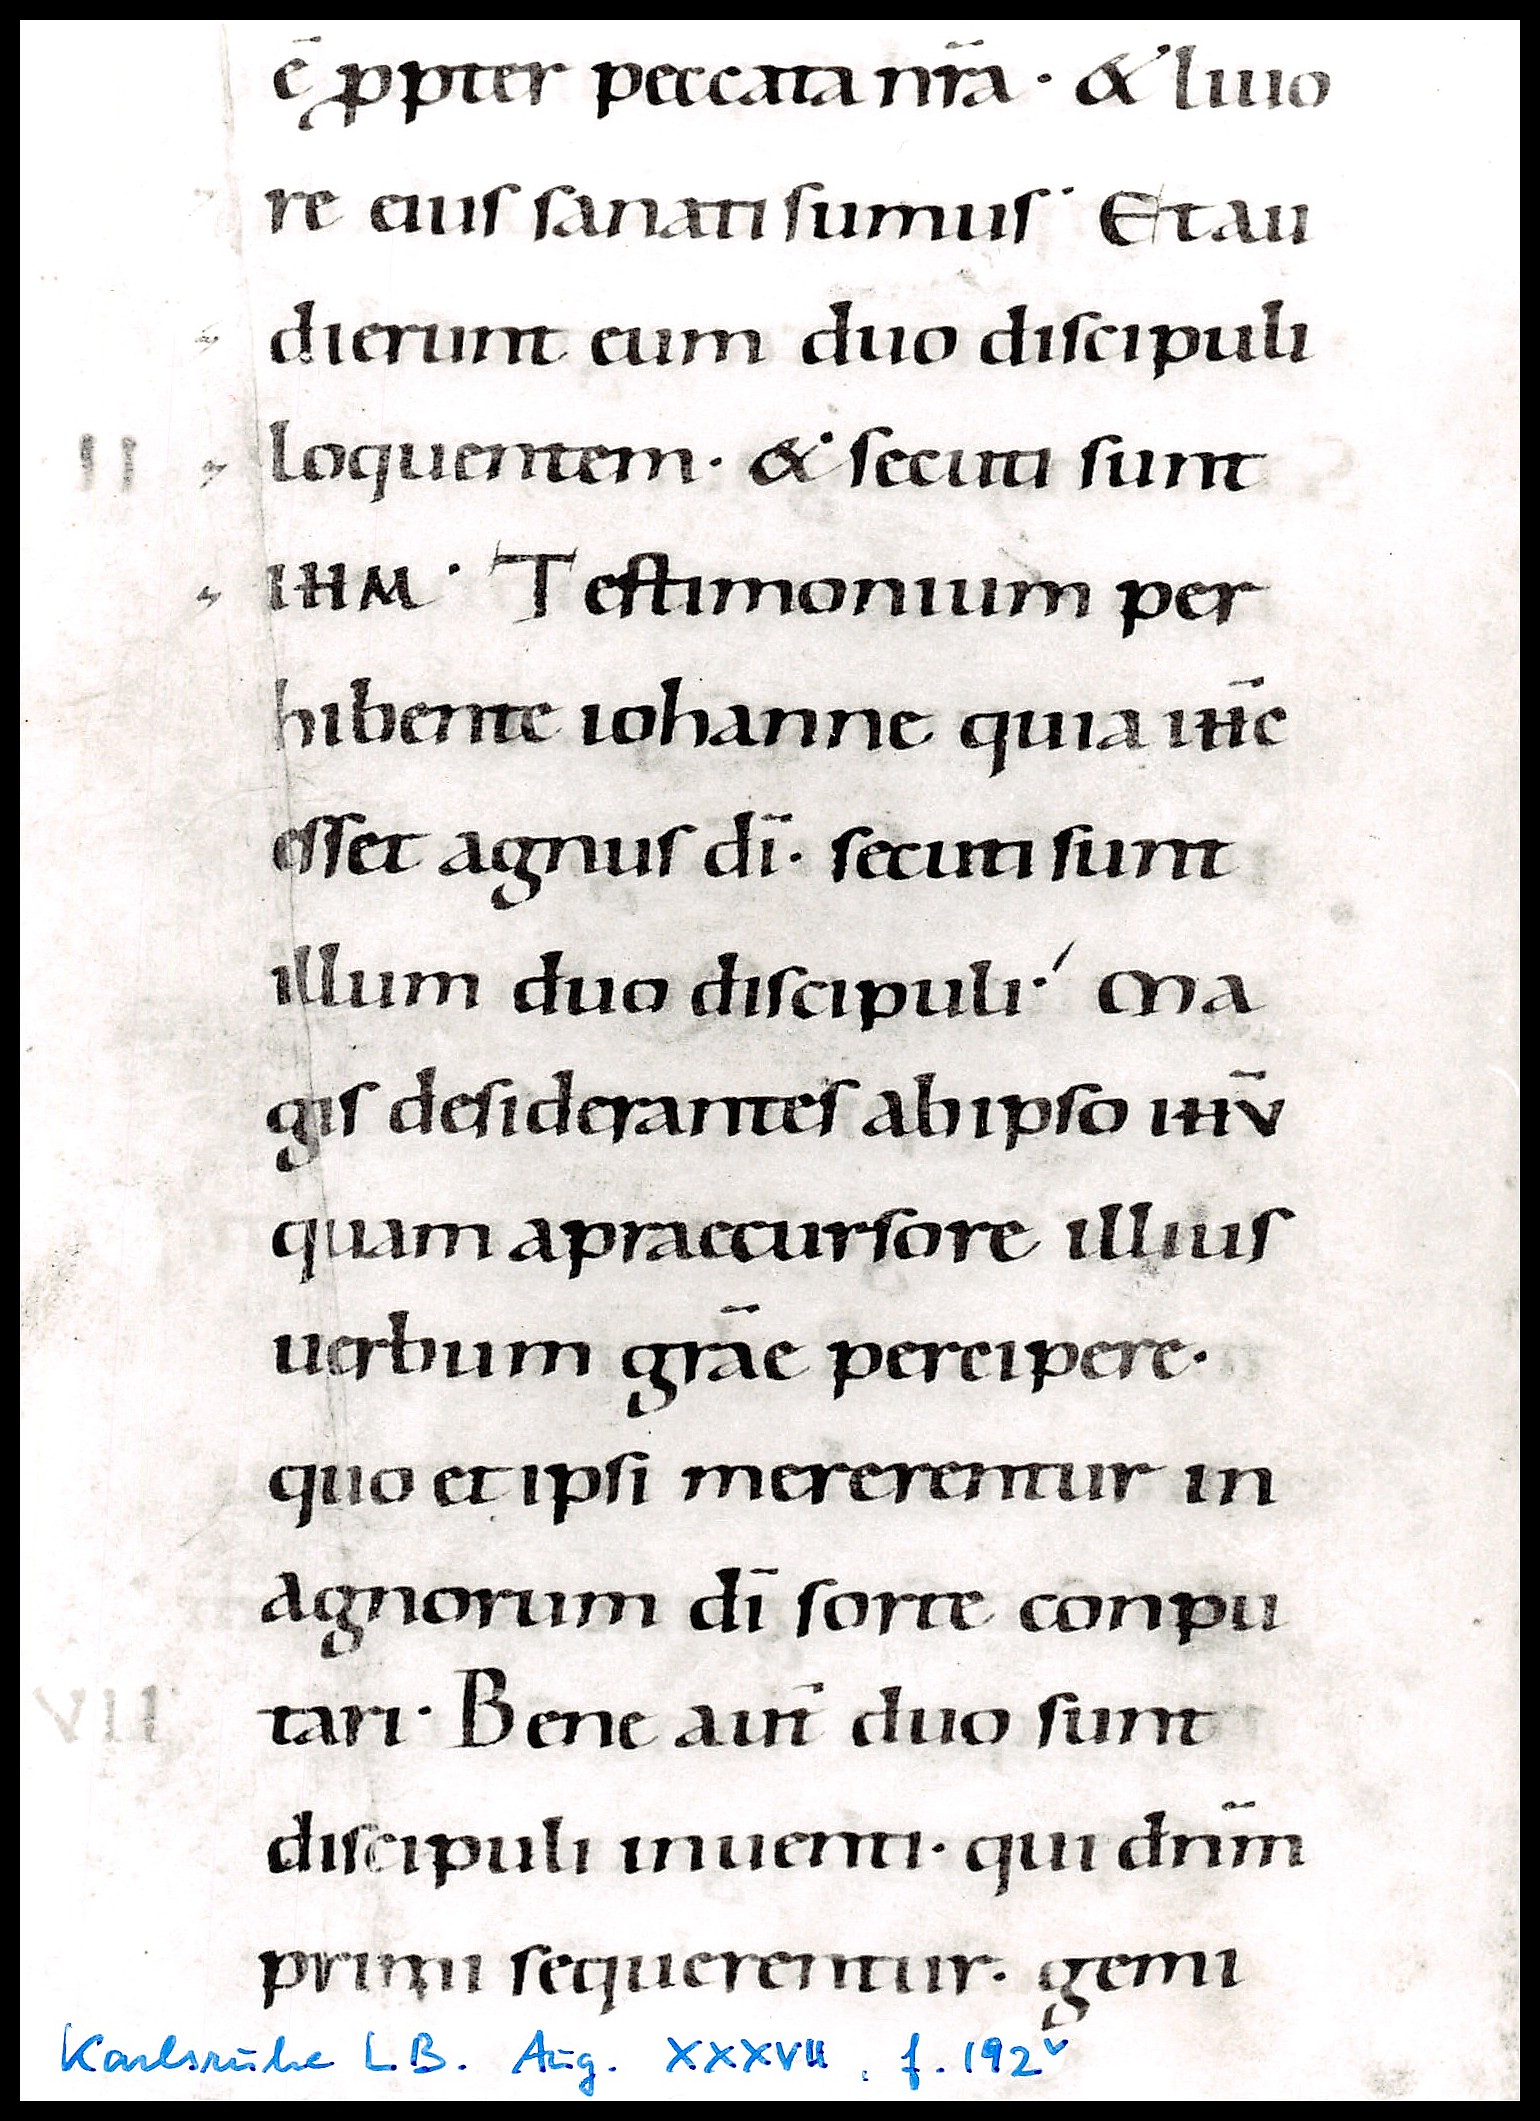 ē ꝓpter peccata nr̄a · & liuo
re eius sanati sumus · Et au
dierunt eum duo discipuli
II loquentem · & secuti sunt
IHM · Testimonium per
hibente iohanne quia ihc̄
esset agnus dī · secuti sunt
illum duo discipuli ·' Ma
gis desiderantes ab ipso ihū
quam a praecursore illius
uerbum grāe percipere ·
quo et ipsi mererentur in
agnorum dī sorte conpu
VII tari · Bene aut̄ duo sunt
discipuli inuenti · qui dnm̄
primi sequerentur · gemi
Karlsruhe LB. Aug. XXXVII, f. 192ᵛ